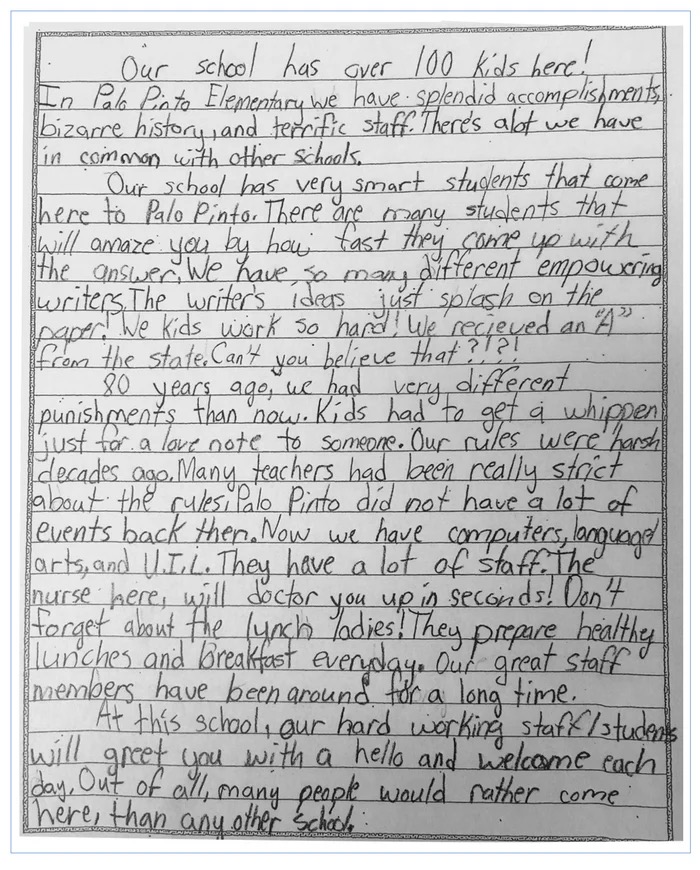 Our school has over 100 kids here!
In Palo Pinto Elementary we have splendid accomplishments,
bizarre history, and terrific staff. There's alot we have
in common with other schools.
Our school has very smart students that come
here to Palo Pinto. There are many students that
will amaze you by how fast they come up with
the answer. We have so many different empowering
writers. The writer's ideas just splash on the
paper! We kids work so hard! We recieved an "A"
from the state. Can't you believe that?!?!
80 years ago, we had very different
punishments than now. Kids had to get a whippen
just for a love note to someone. Our rules were harsh
decades ago. Many teachers had been really strict
about the rules. Palo Pinto did not have a lot of
events back then. Now we have computers, language
arts, and U.I.L. They have a lot of staff. The
nurse here, will doctor you up in seconds! Don't
forget about the lunch ladies! They prepare healthy
lunches and breakfast everyday. Our great staff
members have been around for a long time.
At this school, our hard working staff/students
will greet you with a hello and welcome each
day. Out of all, many people would rather come
here, than any other school.